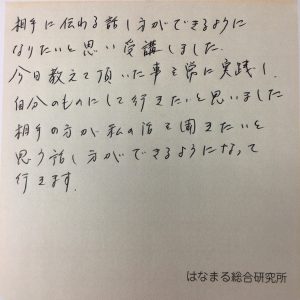 相手に伝わる話し方ができるように
なりたいと思い受講しました.
今日教えて頂いた事を常に実践し.
自分のものにして行きたいと思いました
相手の方が私の話を聞きたいと
思う話し方ができるようになって
行きます.
はなまる総合研究所